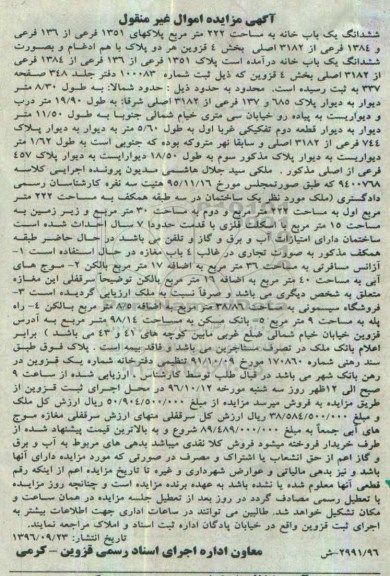 آگهی مزایده اموال غیر منقول
ششدانگ یک باب خانه به مساحت ۲۲۲ متر مربع پلاکهای ۱۳۵۱ فرعی از ۱۳۶ فرعی
و ۱۳۸۴ فرعی از ۳۱۸۲ اصلی بخش ۴ قزوین هر دو پلاک با هم ادغام و بصورت
ششدانگ یک باب خانه درآمده است پلاک ۱۳۵۱ فرعی از ۱۳۶ فرعی از ۱۳۸۴ فرعی
از ۳۱۸۲ اصلی بخش ۴ قزوین که ذیل ثبت شماره ۱۰۰۰۸۳ دفتر جلد ۳۴۸ صفحه
۳۳۷ به ثبت رسیده است. محدود به حدود ذیل : حدود شمالا: به طول ۸/۳۰ متر
دیوار به دیوار پلاک ۶۸۵ و ۱۳۷ فرعی از ۳۱۸۲ اصلی شرقا: به طول ۱۹/۹۰ متر درب
و دیواریست به پیاده رو خیابان سی متری خیام شمالی جنوبا به طول ۱۱/۵۰ متر
دیوار به دیوار قطعه دوم تفکیکی غربا اول به طول ۵/۶۰ متر به دیوار به دیوار پلاک
۷۴۴ فرعی از ۳۱۸۲ اصلی و سابقا نهر متروکه بوده که جنوبی است به طول ۱/۶۲ متر
دیواریست به دیوار پلاک مذکور سوم به طول ۱۸/۵۰ دیواریست به دیوار پلاک ۴۵۷
فرعی از اصلی مذکور . ملکی سید جلال هاشمی مدیون پرونده اجرایی کلاسه
۹۴۰۰۷۶۸ که طبق صورتمجلس مورخ ۹۵/۱۱/۱۶ هئیت سه نفره کارشناسان رسمی
دادگستری (ملک مورد نظر یک ساختمان در سه طبقه همکف به مساحت ۲۲۲ متر
مربع اول به مساحت ۲۲۲ متر مربع و دوم به مساحت ۳۰ متر مربع و زیر زمین به
مساحت ۱۵ متر مربع با اسکلت فلزی با قدمت حدودا ۷ سال احداث شده است
ساختمان دارای امتیازات آب و برق و گاز و تلفن می باشد در حال حاضر طبقه
همکف مذکور به صورت تجاری در غالب ۵ باب مغازه در حال استفاده است ۱-
آژانس مسافرتی به مساحت ۳۶ متر مربع به اضافه ۱۷ متر مربع بالکن ۲- موج های
آبی به مساحت ۴۰ متر مربع به اضافه ۱۶ متر مربع بالکن توضیحاً سرقفلی این مغازه
متعلق به شخص دیگری می باشد و صرفاً نسبت به ملک ارزیابی گردیده است ۳-
فروشگاه سیسمونی به مساحت ۳۸/۸۶ متر مربع به اضافه ۸/۵ متر مربع بالکن ۴- راه
پله به مساحت ۹ متر مربع ۵- بانک مسکن به مساحت ۹۸/۱۴ متر مربع به آدرس
قزوین خیابان خیام شمالی ضلع غربی مابین کوچه های ۴۱ و ۴۳ می باشد ) برابر
اعلام بانک ملک در تصرف مستاجرین می باشد و فاقد بیمه است . پلاک فوق طبق
سند رهنی شماره ۱۷۰۸۶۰ مورخ ۹۱/۷/۰۹ تنظیمی دفترخانه شماره یک قزوین در
رهن بانک شهر می باشد در قبال طلب توسط کارشناس ارزیابی شده از ساعت ۹
صبح الی ۱۲ظهر روز سه شنبه مورخه ۹۶/۱۰/۱۲ در محل اجرای ثبت قزوین از
طریق مزایده به فروش میرسد مزایده از مبلغ ۵۰/۹۰۴/۵۰۰/۰۰۰ ریال ارزش کل ملک
و مبلغ ۳۸/۵۸۴/۵۰۰/۰۰۰ ریال ارزش کل سرقفلی منهای ارزش سرقفلی مغازه موج
های آبی جمعاً به مبلغ ۸۹/۴۸۹/۰۰۰/۰۰۰ شروع و به بالاترین قیمت پیشنهاد شده از
طرف خریدار فروخته میشود فروش کلا نقدی میباشد بدهی های مربوط به آب و برق
و گاز اعم از حق انشعاب یا اشتراک و مصرف در صورتی که مورد مزایده دارای آنها
باشد و نیز بدهی مالیاتی و عوارض شهرداری و غیره تا تاریخ مزایده اعم از اینکه رقم
قطعی آنها معلوم شده یا نشده باشد به عهده برنده مزایده است و چنانچه روز مزایده
با تعطیل رسمی مصادف گردد در روز بعد از تعطیل جلسه مزایده در همان ساعت و
مکان تشکیل خواهد شد. طالبین می توانند در ساعات اداری جهت اطلاعات بیشتر به
اجرای ثبت قزوین واقع در خیابان پادگان اداره ثبت اسناد و املاک مراجعه نمایند.
تاریخ انتشار: ۱۳۹۶/۰۹/۲۳
معاون اداره اجرای اسناد رسمی قزوین – کرمی
۲۹۹۱/۹۶-ش